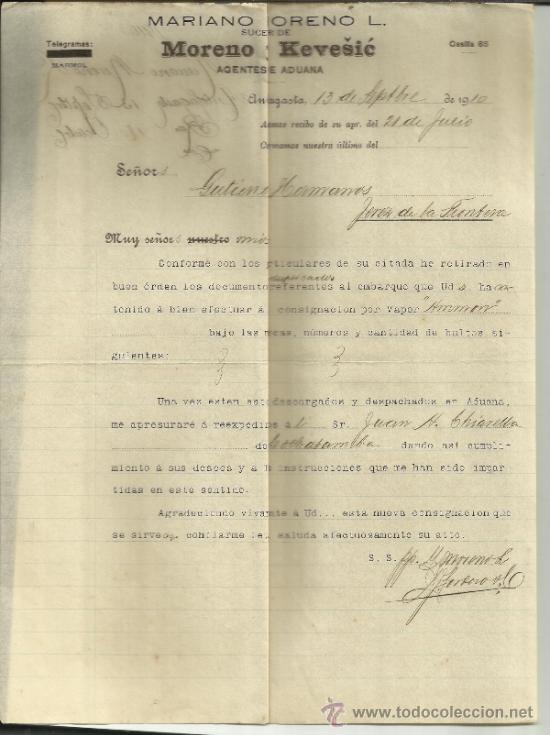 MARIANO MORENO L.
SUCER DE
Telegramas:
Moreno Kevešić
Casilla 65
MARMOL
AGENTES E ADUANA
Antofagasta, 13 de Septbre de 1910
Acuso recibo de su apr. del 21 de Junio
Confirmamos nuestra última del
Señores
Gutierrez Hermanos
Jerez de la Frontera
Muy señores nuestro mios
Conforme con los particulares de su citada he retirado en
duplicados
buen órden los documentos referentes al embarque que Uds han
tenido á bien efectuar a consignacion por vapor "Ammon"
bajo las marcas, números y cantidad de bultos si-
guientes:
Una vez esten estos descargados y despachados en Aduana,
me apresuraré á reexpedirlos al Sr. Juan H. Chiarella
de Cochabamba dando así cumpli-
miento á sus deseos y a las instrucciones que me han sido impar-
tidas en este sentido.
Agradeciendo vivamente á Ud... esta nueva consignacion que
se sirven confiarme les saluda afectuosamente su atto.
S. S. pp. M Moreno L
www.todocoleccion.net